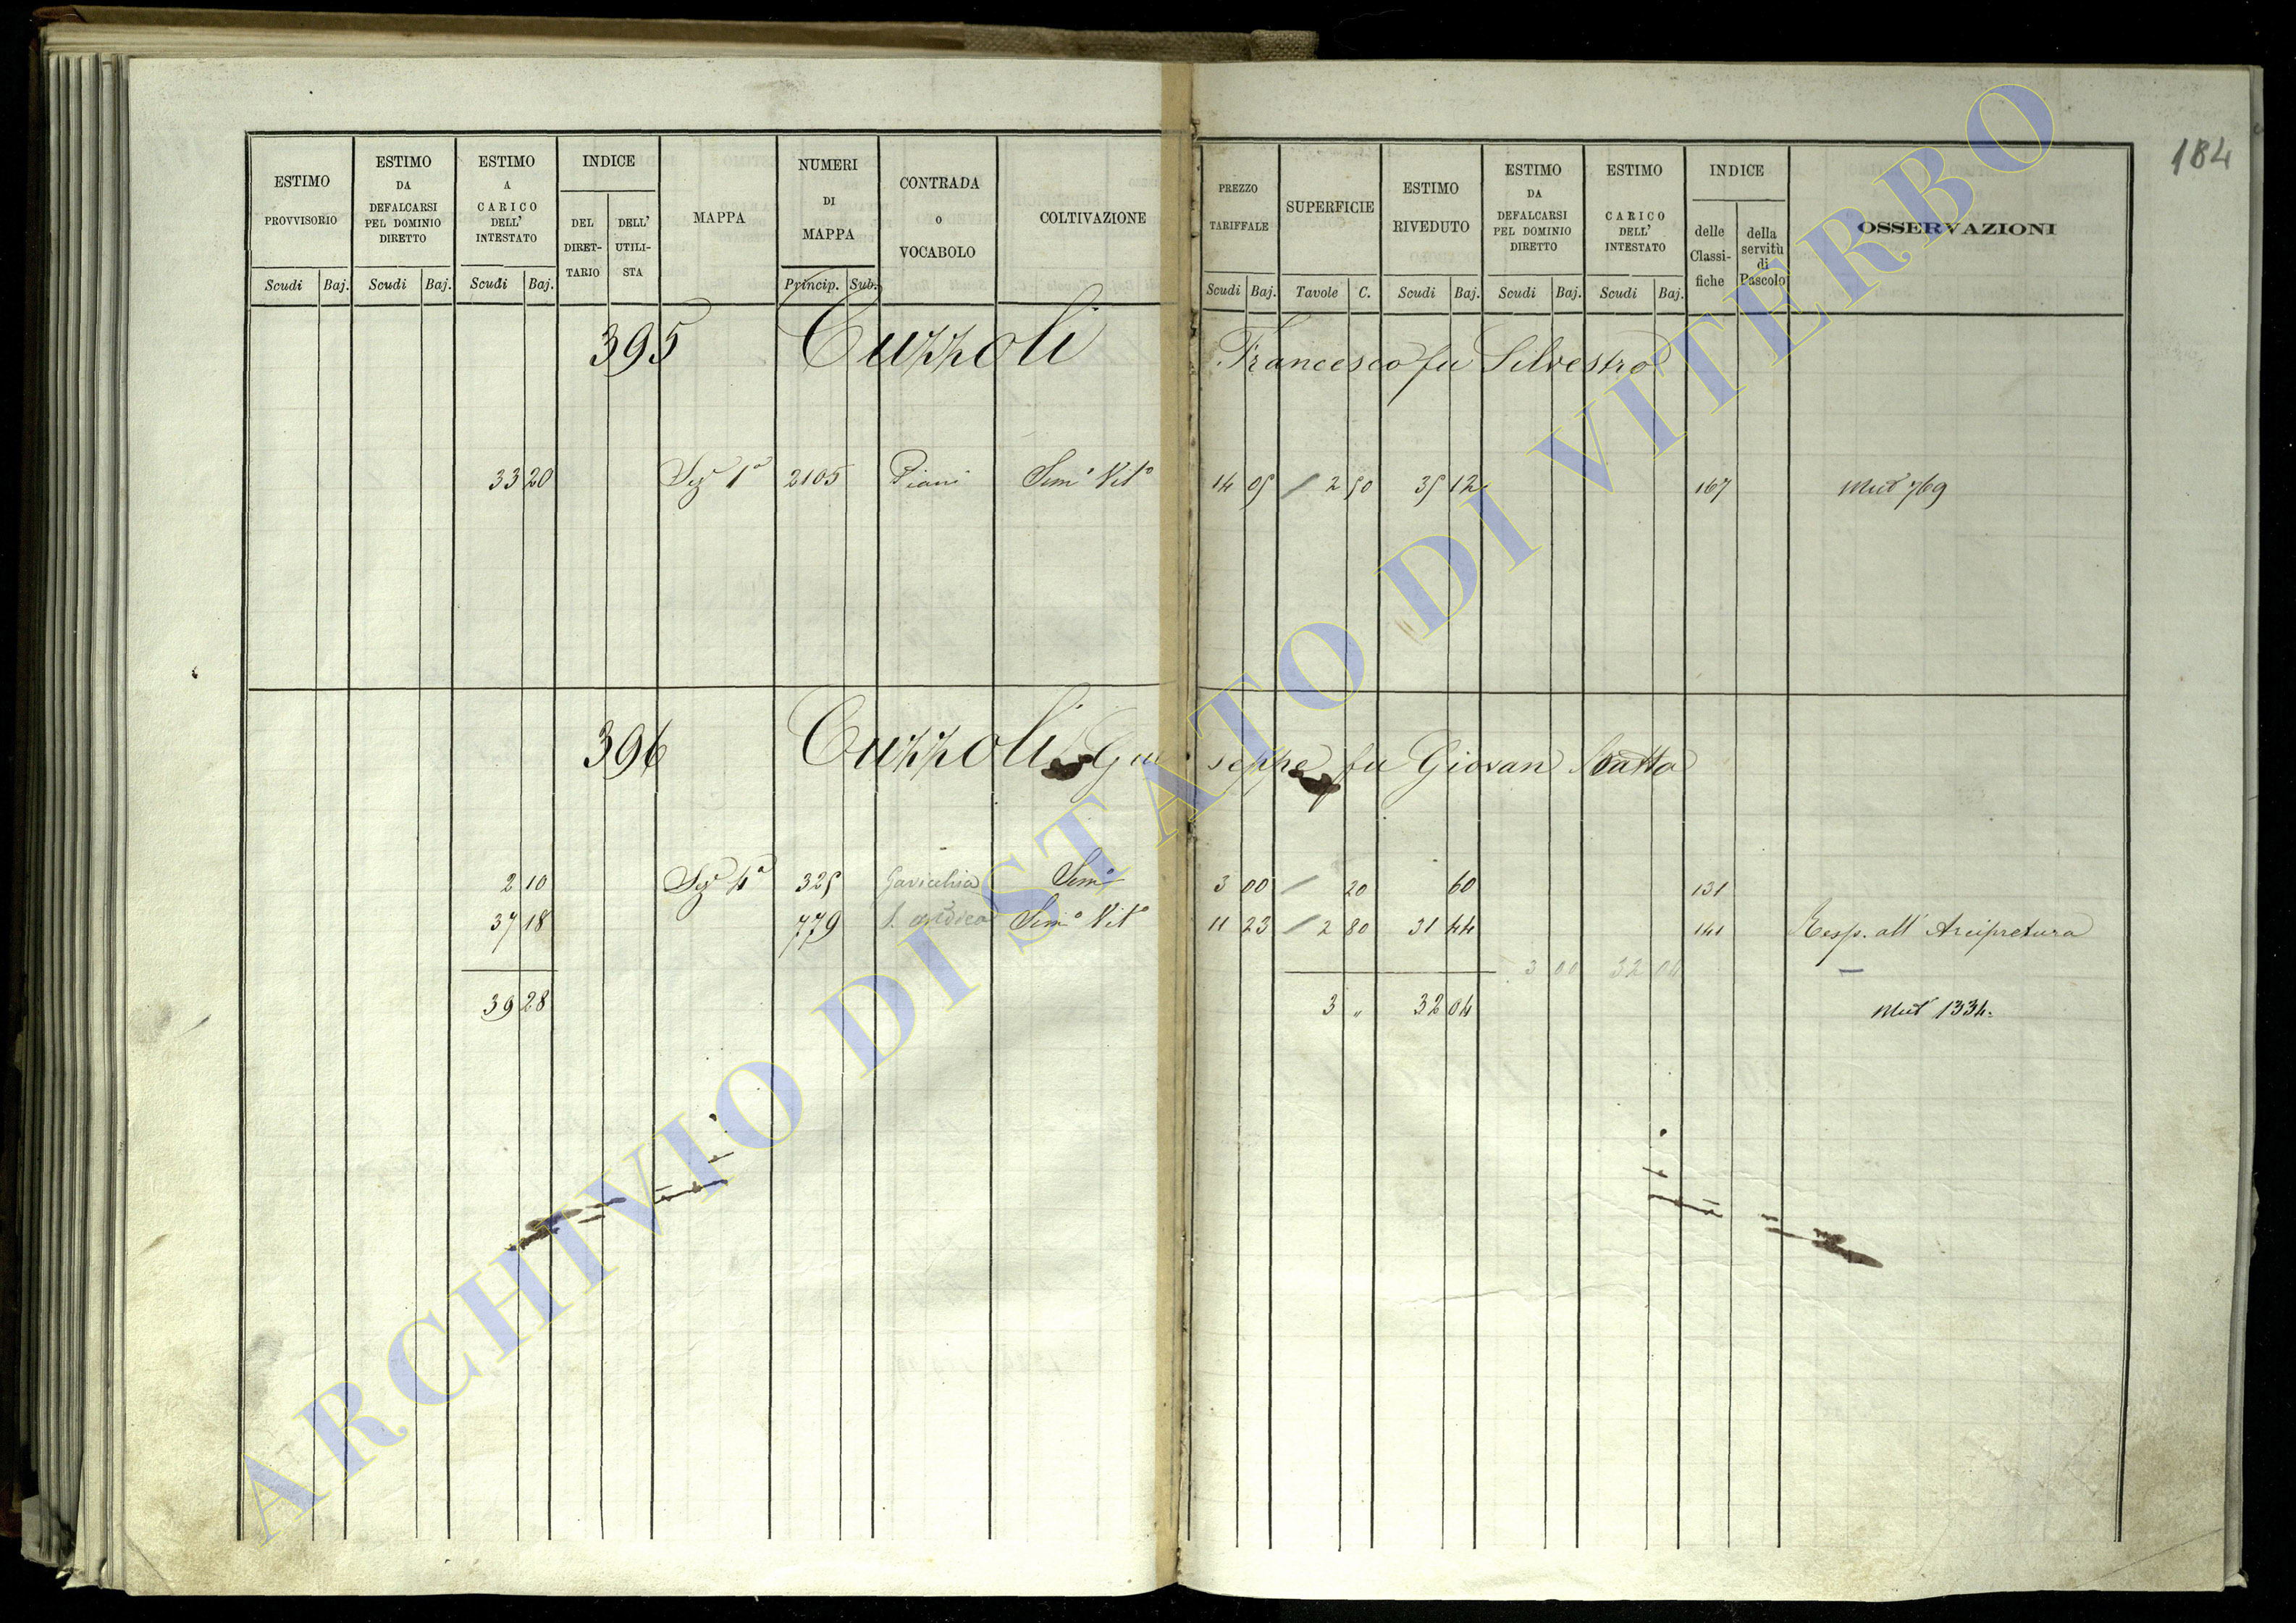 184
ESTIMO PROVVISORIO
ESTIMO DA DEFALCARSI PEL DOMINIO DIRETTO
ESTIMO A CARICO DELL' INTESTATO
INDICE
DEL DIRET-TARIO
DELL' UTILI-STA
MAPPA
NUMERI DI MAPPA
CONTRADA O VOCABOLO
COLTIVAZIONE
PREZZO TARIFFALE
SUPERFICIE
ESTIMO RIVEDUTO
ESTIMO DA DEFALCARSI PEL DOMINIO DIRETTO
ESTIMO CARICO DELL' INTESTATO
INDICE
delle Classi-fiche
della servitù di Pascolo
OSSERVAZIONI
Scudi Baj. Scudi Baj. Scudi Baj. Princip. Sub. Scudi Baj. Tavole C. Scudi Baj. Scudi Baj. Scudi Baj.
395 Cuzzoli Francesco fu Silvestro
33 20 Sez 1ª 2105 Piani Semº Vitº 14 05 2 50 35 12 167 Mut 769
396 Cuzzoli Giuseppe fu Giovan Batta
2 10 Sez 4ª 325 Gavicchia Semº 3 00 20 60 131
37 18 779 Semº Vitº 11 23 2 80 31 44 141 Resp. all' Arcipretura
3 00 32 04
39 28 3 " 32 04 Mut 1334.
ARCHIVIO DI STATO DI VITERBO